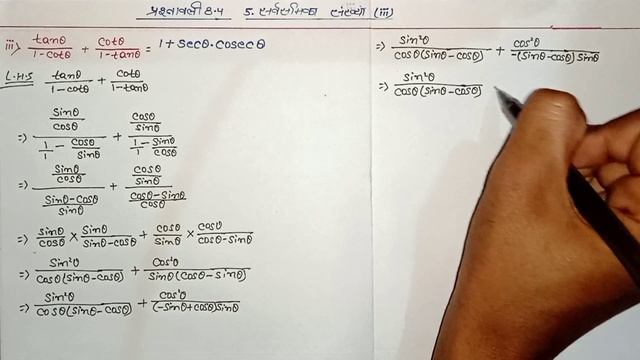 प्रश्नावली 8.4 5. सर्वसमिका संख्या (iii)
iii) tanθ/(1-cotθ) + cotθ/(1-tanθ) = 1+secθ.cosecθ
L.H.S tanθ/(1-cotθ) + cotθ/(1-tanθ)
⇒ (sinθ/cosθ)/(1/1 - cosθ/sinθ) + (cosθ/sinθ)/(1/1 - sinθ/cosθ)
⇒ (sinθ/cosθ)/((sinθ-cosθ)/sinθ) + (cosθ/sinθ)/((cosθ-sinθ)/cosθ)
⇒ sinθ/cosθ × sinθ/(sinθ-cosθ) + cosθ/sinθ × cosθ/(cosθ-sinθ)
⇒ sin²θ/(cosθ(sinθ-cosθ)) + cos²θ/(sinθ(cosθ-sinθ))
⇒ sin²θ/(cosθ(sinθ-cosθ)) + cos²θ/((-sinθ+cosθ)sinθ)
⇒ sin²θ/(cosθ(sinθ-cosθ)) + cos²θ/(-(sinθ-cosθ)sinθ)
⇒ sin²θ/(cosθ(sinθ-cosθ))